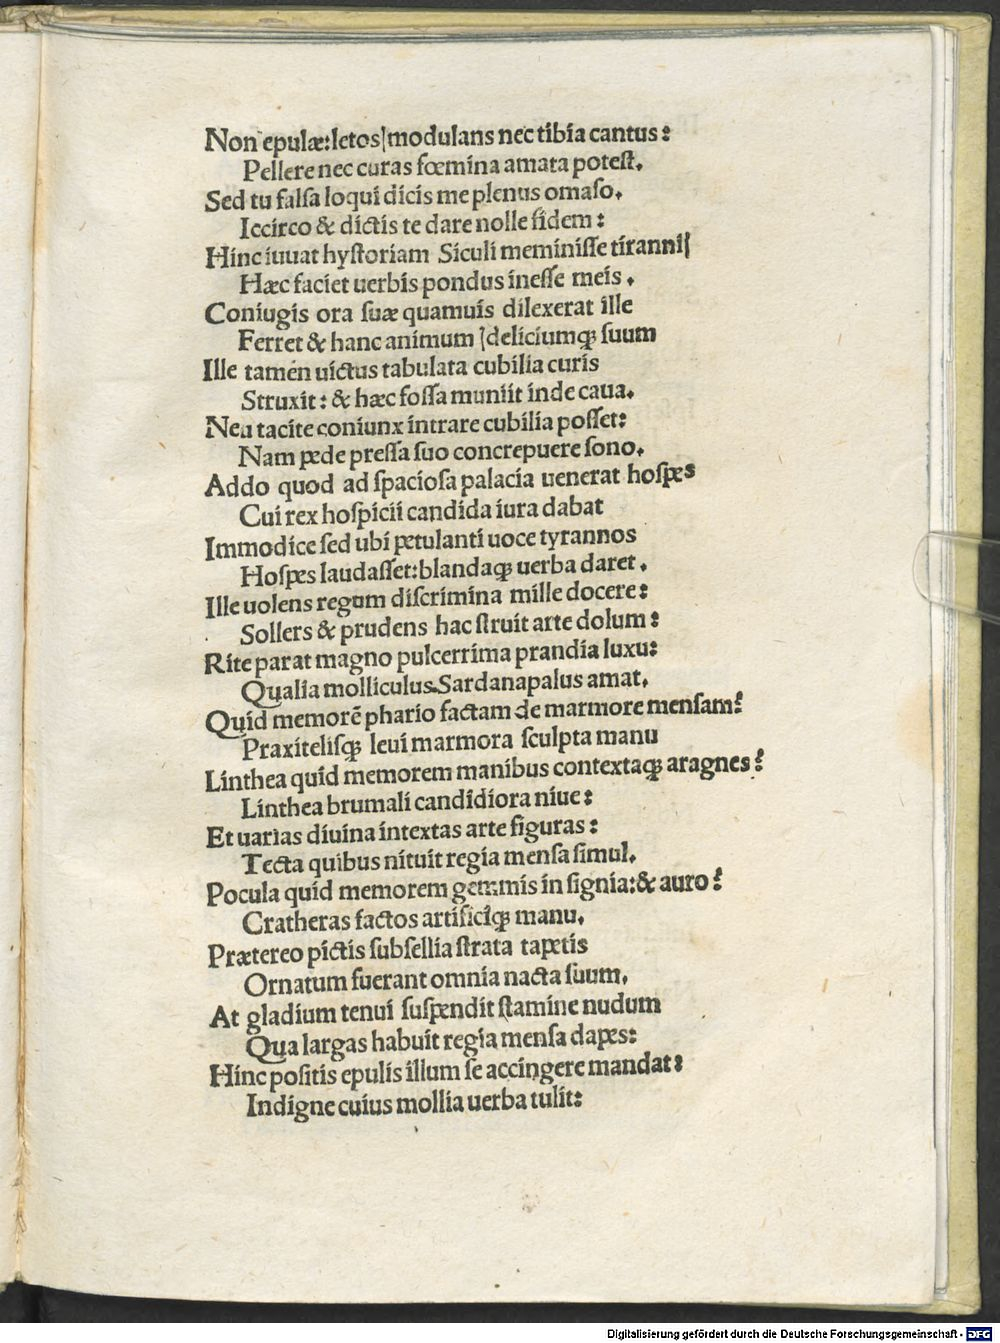 Non epulæ: letos|modulans nec tibia cantus:
Pellere nec curas fœmina amata potest.
Sed tu falsa loqui dicis me plenus omaso.
Iccirco & dictis te dare nolle fidem:
Hinc iuuat hystoriam Siculi meminisse tiranni|
Hæc faciet uerbis pondus inesse meis.
Coniugis ora suæ quamuis dilexerat ille
Ferret & hanc animum |deliciumqꝫ suum
Ille tamen uictus tabulata cubilia curis
Struxit: & hæc fossa muniit inde caua.
Neu tacite coniunx intrare cubilia posset:
Nam pede pressa suo concrepuere sono.
Addo quod ad spaciosa palacia uenerat hospes
Cui rex hospicii candida iura dabat
Immodice sed ubi petulanti uoce tyrannos
Hospes laudasset: blandaqꝫ uerba daret.
Ille uolens regum discrimina mille docere:
Sollers & prudens hac struit arte dolum:
Rite parat magno pulcerrima prandia luxu:
Qualia molliculus Sardanapalus amat.
Quid memorẽ phario factam de marmore mensam?
Praxitelisqꝫ leui marmora sculpta manu
Linthea quid memorem manibus contextaqꝫ aragnes?
Linthea brumali candidiora niue:
Et uarias diuina intextas arte figuras:
Tecta quibus nituit regia mensa simul.
Pocula quid memorem gemmis in signia: & auro?
Cratheras factos artificiqꝫ manu.
Prætereo pictis subsellia strata tapetis
Ornatum fuerant omnia nacta suum.
At gladium tenui suspendit stamine nudum
Qua largas habuit regia mensa dapes:
Hinc positis epulis illum se accingere mandat:
Indigne cuius mollia uerba tulit:
Digitalisierung gefördert durch die Deutsche Forschungsgemeinschaft - DFG